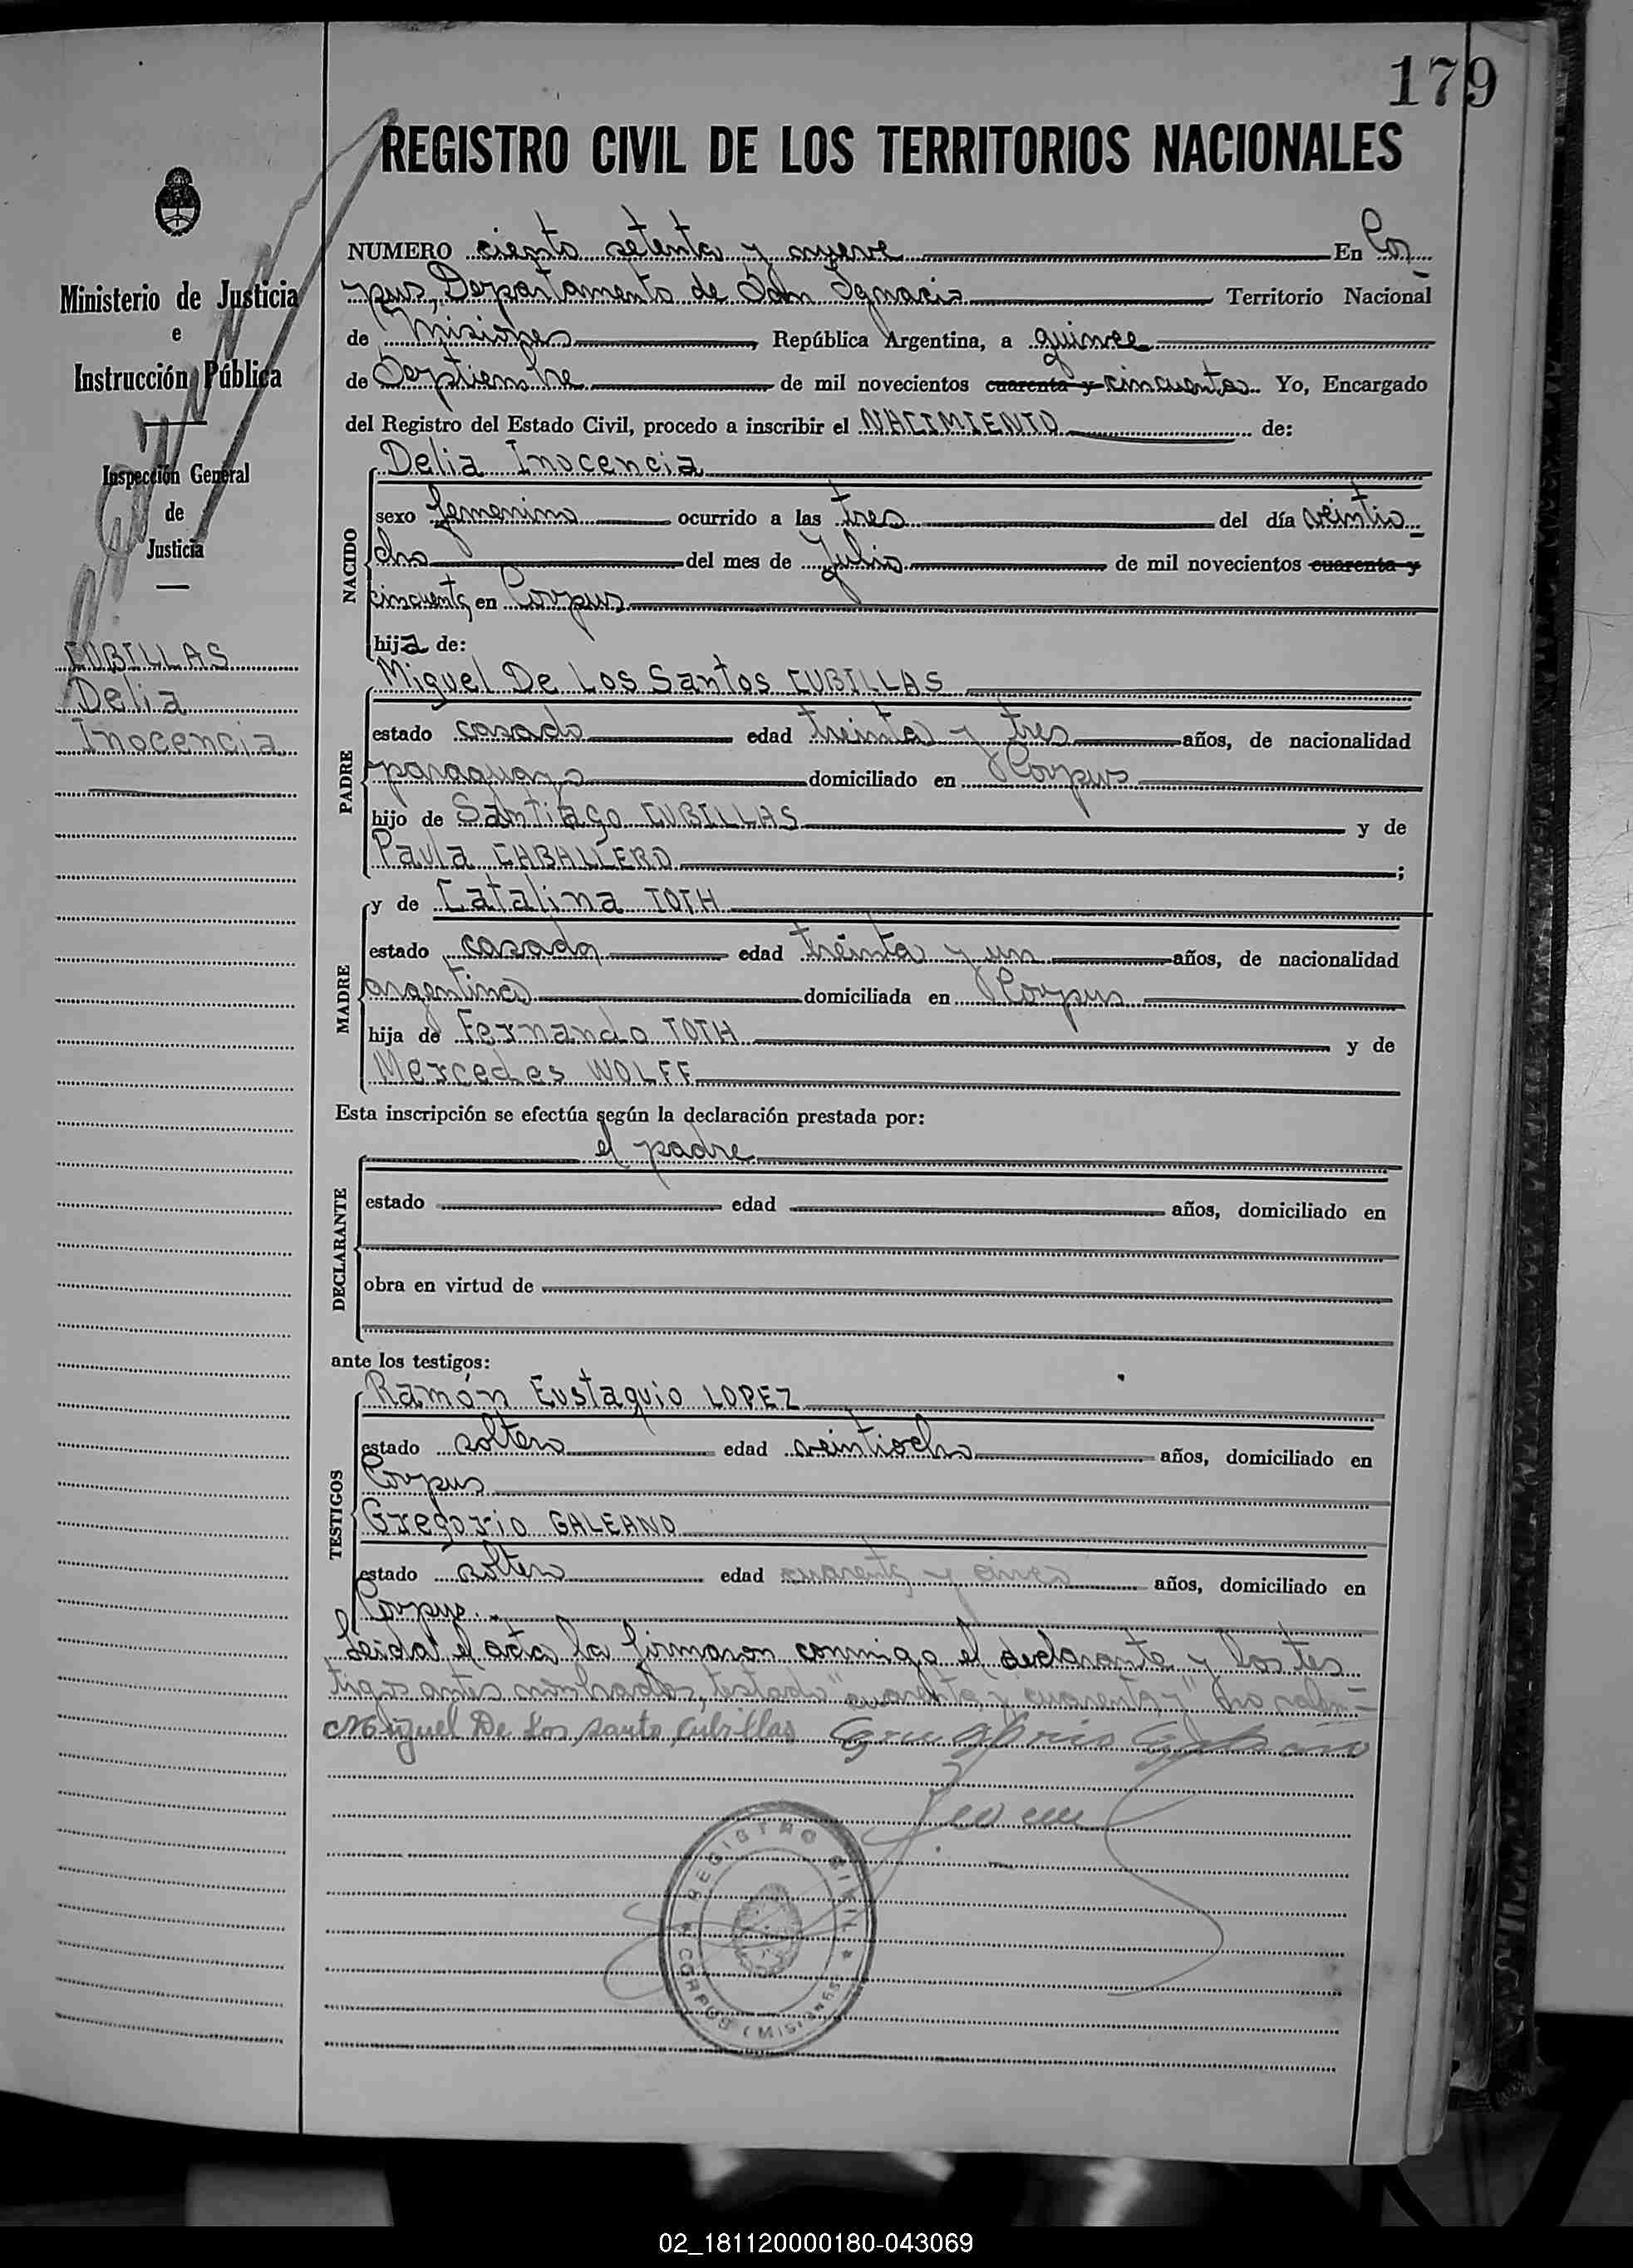 179
REGISTRO CIVIL DE LOS TERRITORIOS NACIONALES
Ministerio de Justicia
e
Instrucción Pública
Inspección General
de
Justicia
CUBILLAS
Delia
Inocencia
NUMERO ciento setenta y nueve En Cor
pus, Departamento de San Ignacio Territorio Nacional
de Misiones, República Argentina, a quince
de Septiembre de mil novecientos cuarenta y cincuenta. Yo, Encargado
del Registro del Estado Civil, procedo a inscribir el NACIMIENTO de:
Delia Inocencia
NACIDO
sexo femenino ocurrido a las tres del día veintio
cho del mes de Julio de mil novecientos cuarenta y
cincuenta en Corpus
hija de:
Miguel De Los Santos CUBILLAS
PADRE
estado casado edad treinta y tres años, de nacionalidad
paraguayo domiciliado en Corpus
hijo de Santiago CUBILLAS y de
Paula CABALLERO;
y de Catalina TOTH
MADRE
estado casada edad treinta y un años, de nacionalidad
argentina domiciliada en Corpus
hija de Fernando TOTH y de
Mercedes WOLFF
Esta inscripción se efectúa según la declaración prestada por:
el padre
DECLARANTE
estado edad años, domiciliado en
obra en virtud de
ante los testigos:
Ramón Eustaquio LOPEZ
TESTIGOS
estado soltero edad veintiocho años, domiciliado en
Corpus
Gregorio GALEANO
estado soltero edad cuarenta y cinco años, domiciliado en
Corpus.
Leida el acta la firmaron conmigo el declarante y los tes
tigos antes nombrados, testado "cuarenta y cuarenta y" no valen
Miguel De Los Santo Cubillas
REGISTRO CIVIL
CORPUS (MISIONES
02_181120000180-043069